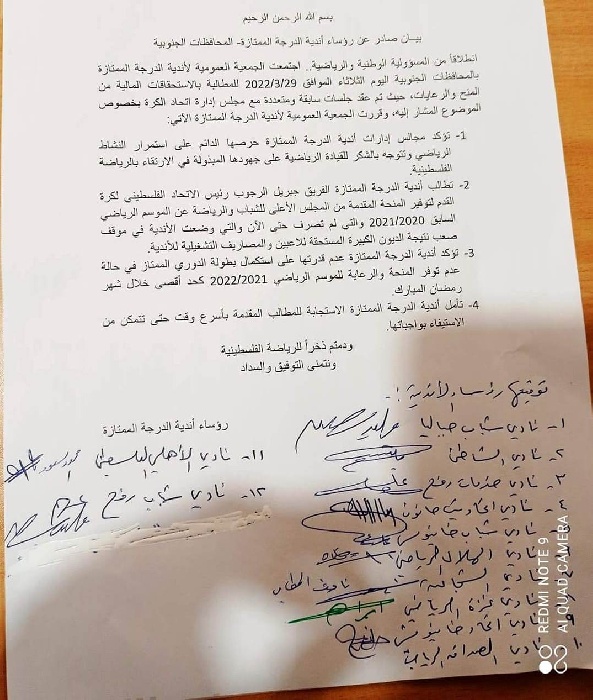 بسم الله الرحمن الرحيم
بيان صادر عن رؤساء أندية الدرجة الممتازة- المحافظات الجنوبية
انطلاقاً من المسؤولية الوطنية والرياضية.. اجتمعت الجمعية العمومية لأندية الدرجة الممتازة
بالمحافظات الجنوبية اليوم الثلاثاء الموافق 2022/3/29 للمطالبة بالاستحقاقات المالية من
المنح والرعايات، حيث تم عقد جلسات سابقة ومتعددة مع مجلس إدارة اتحاد الكرة بخصوص
الموضوع المشار إليه، وقررت الجمعية العمومية لأندية الدرجة الممتازة الآتي:
1- تؤكد مجالس إدارات أندية الدرجة الممتازة حرصها الدائم على استمرار النشاط
الرياضي وتتوجه بالشكر للقيادة الرياضية على جهودها المبذولة في الارتقاء بالرياضة
الفلسطينية.
2- تطالب أندية الدرجة الممتازة الفريق جبريل الرجوب رئيس الاتحاد الفلسطيني لكرة
القدم لتوفير المنحة المقدمة من المجلس الأعلى للشباب والرياضة عن الموسم الرياضي
السابق 2021/2020 والتي لم تصرف حتى الآن والتي وضعت الأندية في موقف
صعب نتيجة الديون الكبيرة المستحقة للاعبين والمصاريف التشغيلية للأندية.
3- تؤكد أندية الدرجة الممتازة عدم قدرتها على استكمال بطولة الدوري الممتاز في حالة
عدم توفر المنحة والرعاية للموسم الرياضي 2022/2021 كحد أقصى خلال شهر
رمضان المبارك.
4- تأمل أندية الدرجة الممتازة الاستجابة للمطالب المقدمة بأسرع وقت حتى تتمكن من
الاستيفاء بواجباتها.
ودمتم ذخراً للرياضة الفلسطينية
ونتمنى التوفيق والسداد
رؤساء أندية الدرجة الممتازة
رؤساء الأندية :-
١- نادي شباب جباليا
٢- نادي الشاطئ
٣- نادي خدمات رفح
٤- نادي اتحاد بيت حانون
نادي شباب خانيونس
نادي الهلال الرياضي
نادي الشجاعية
نادي غزة الرياضي
نادي اتحاد خانيونس
١٠ نادي الصداقة الرياضي
١١- نادي الأهلي الفلسطيني
١٢- نادي شباب رفح
REDMI NOTE 9
AI QUAD CAMERA